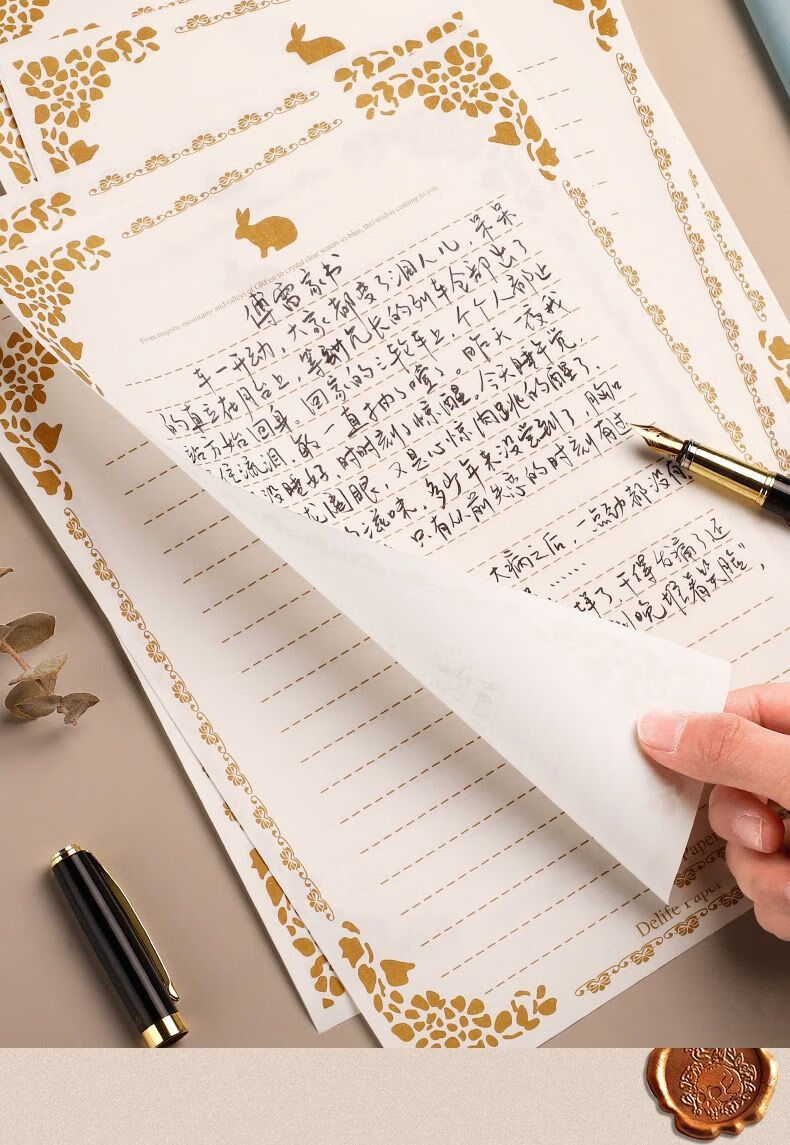 From majestic mountains and valleys of GREen to crystal clear waters so blue, this wish is coming to you.
傅雷家书
车一开动，大家都变了泪人儿，呆呆
的直立在月台上，等到冗长的列车全部出了
站方始回身。回家的三轮车上，个个人都止
住流泪。敏一直抽了噎。昨天一夜我
没睡好，时时刻刻惊醒。今天睡午觉，
阖眼，又是心惊肉跳的醒了。
滋味，多少年来没尝到了，胸口
只有从前失恋的时刻有过
大病之后，一点劲都没有
……
样了
到晚堆着笑脸，
Paper
Delife Paper